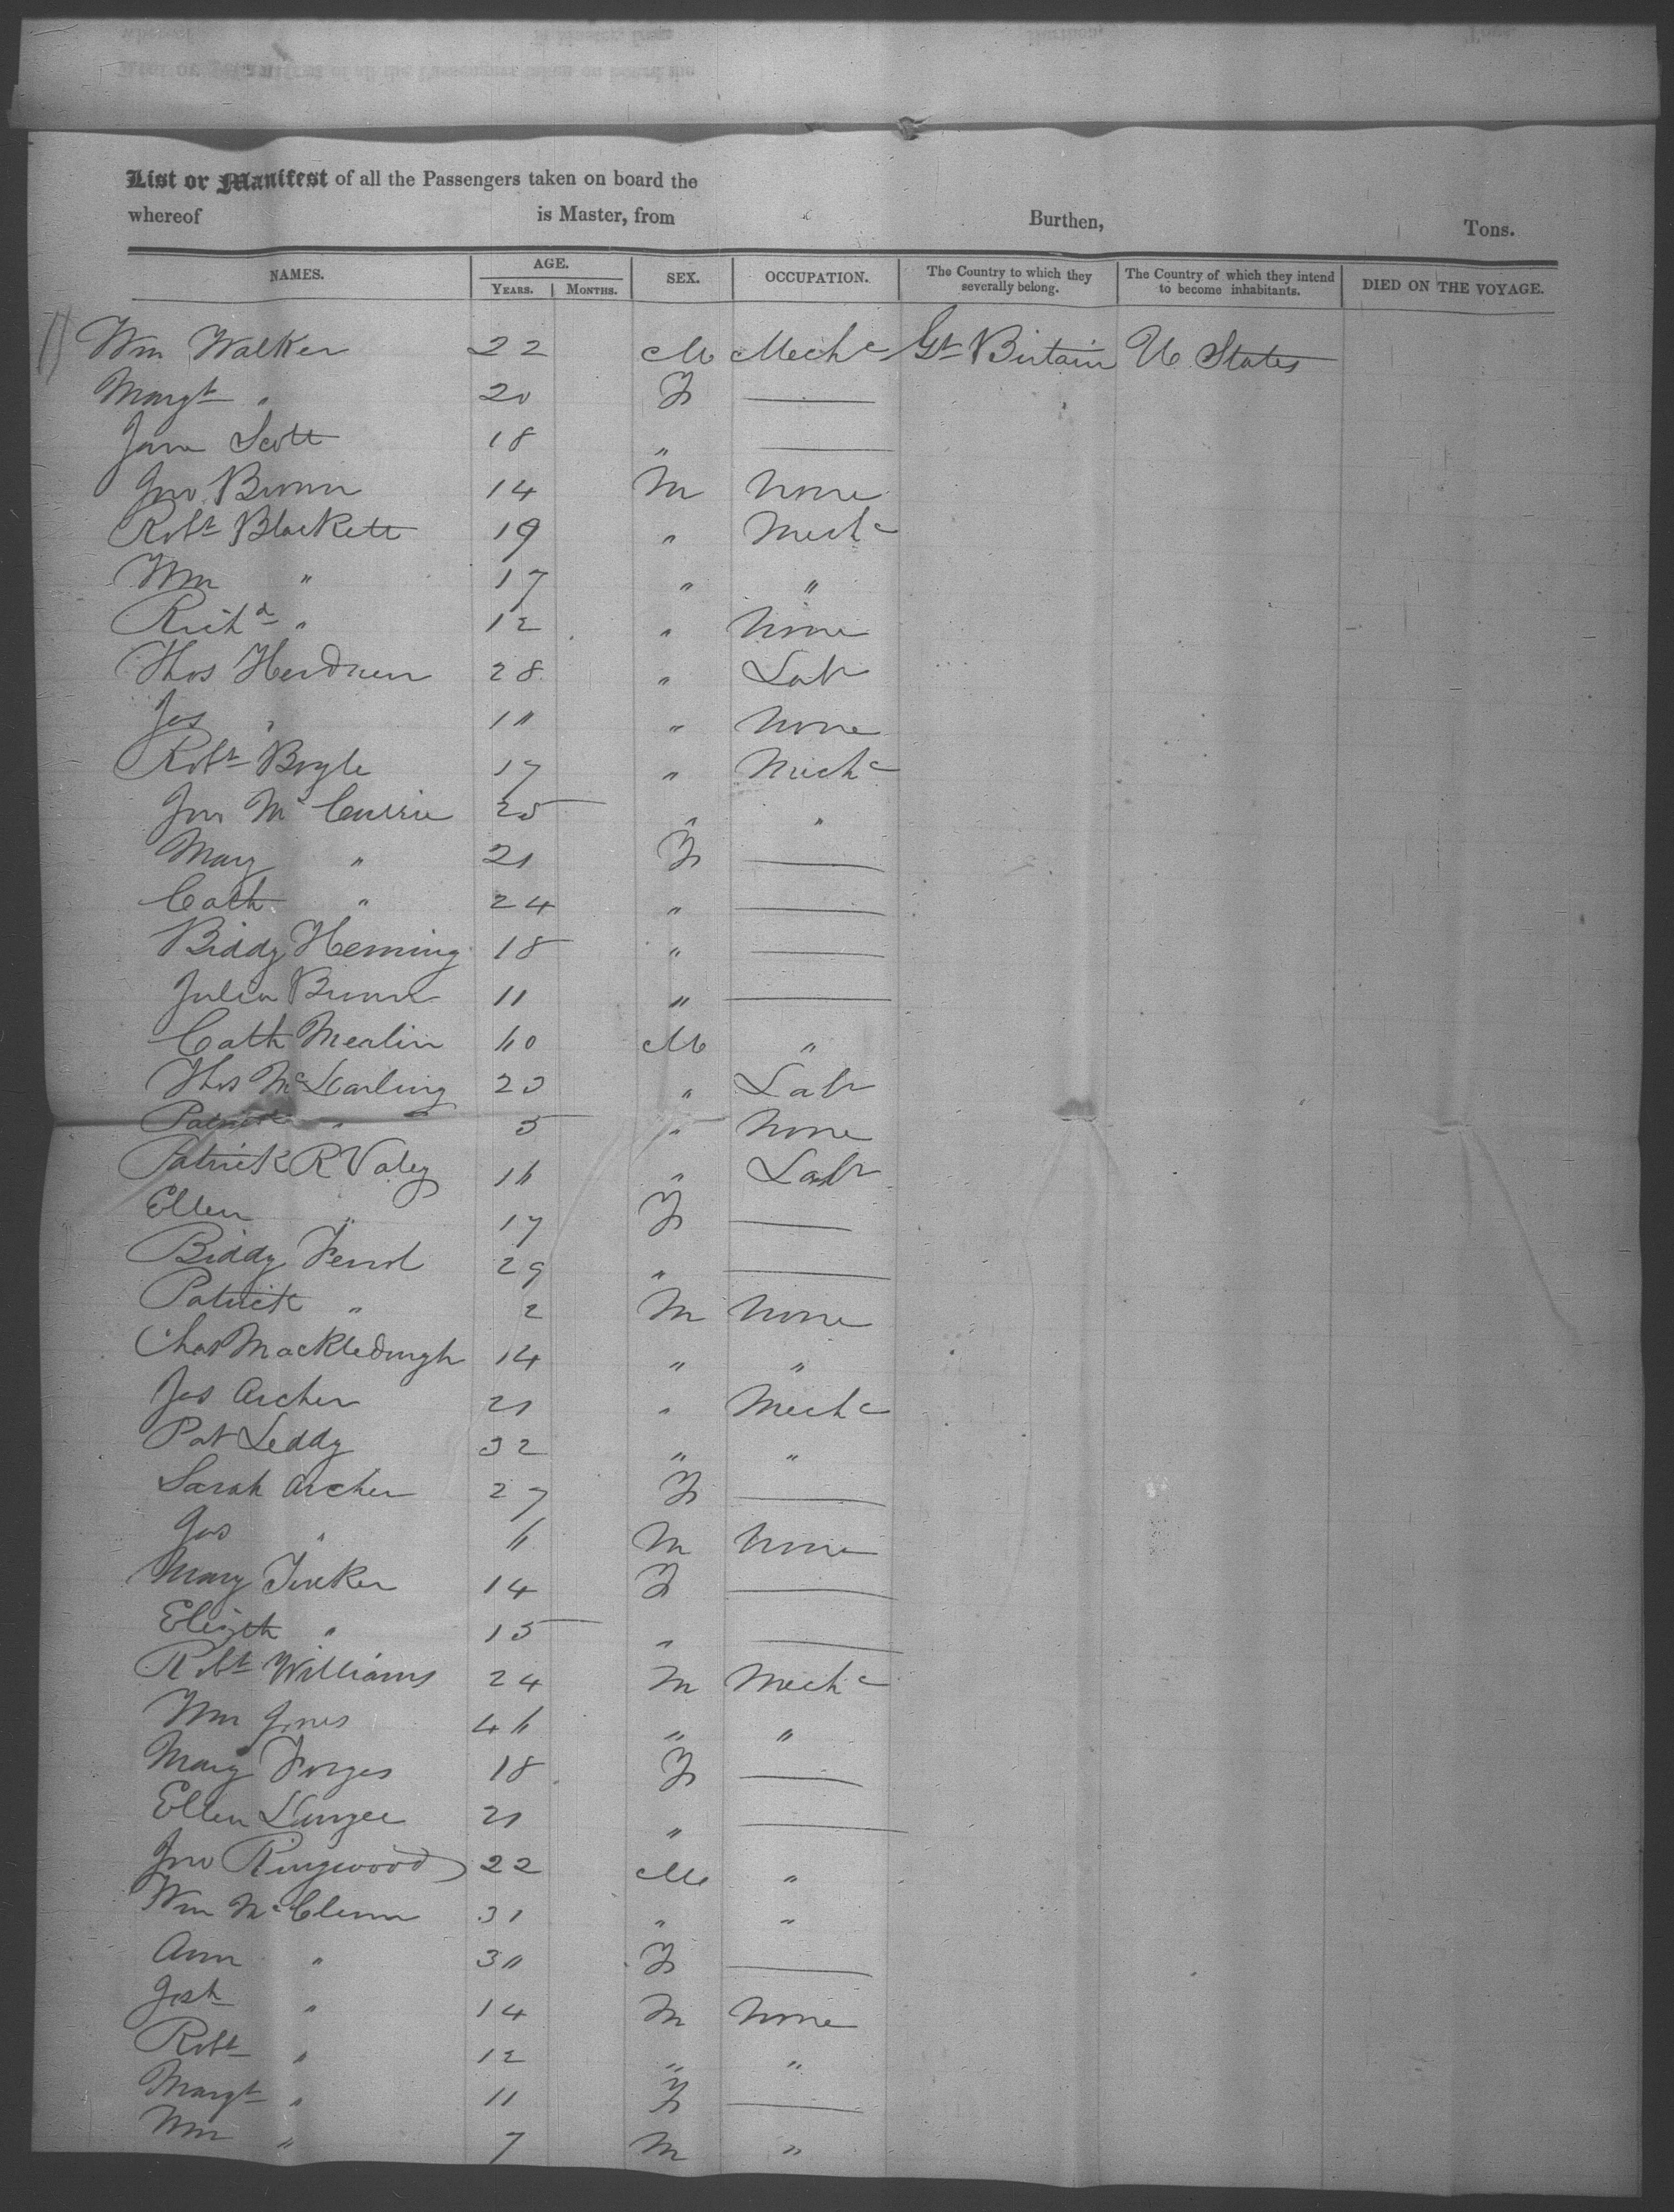 List or Manifest of all the Passengers taken on board the
whereof is Master, from Burthen, Tons.
NAMES. AGE. YEARS. MONTHS. SEX. OCCUPATION. The Country to which they severally belong. The Country of which they intend to become inhabitants. DIED ON THE VOYAGE.
Wm Walker 22 M Mechc Gt Britain U States
Margt " 20 F —
Jane Scott 18 " —
Jno Brown 14 M None
Robt Blackett 19 " Mechc
Wm " 17 " "
Richd " 12 " None
Thos 28 " Labr
Jas " " None
Robt Boyle 17 " Mechc
Jno McCurrie 25 " "
Mary " 21 F —
Cath " 24 " —
Biddy Heming 18 " —
Julia 11 " —
Cath Mealin M "
Thos 23 " Labr
Patrick " 5 " None
Patrick " Labr
Ellen " 17 F —
Biddy 29 " —
Patrick " 2 M None
Chas 14 " "
Jas Archer 21 " Mechc
Pat Leddy 32 " "
Sarah Archer 27 F —
Jas " M None
Mary Tucker 14 F —
Elizth " 15 " —
Robt Williams 24 M Mechc
Wm Jones " "
Mary Forges 18 F —
Ellen 21 " —
Jno Ringwood 22 M "
Wm McClenn 31 " "
Ann " F —
Josh " 14 M None
Robt " 12 " "
Margt " 11 F —
Wm " 7 M "